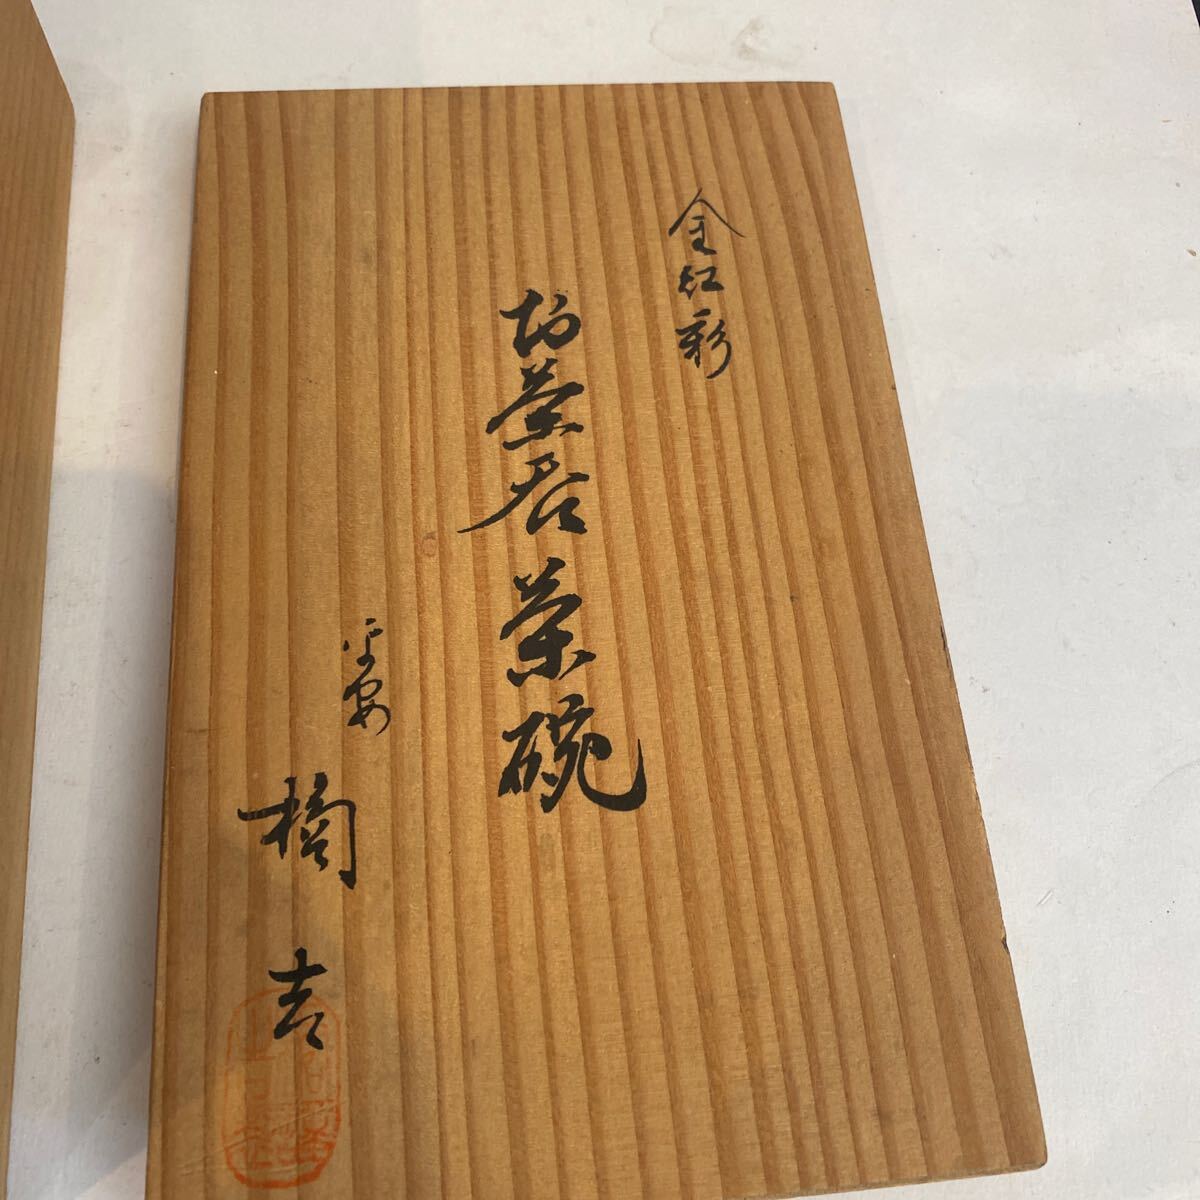 金紅彩
お茶呑茶碗
平安
橘吉